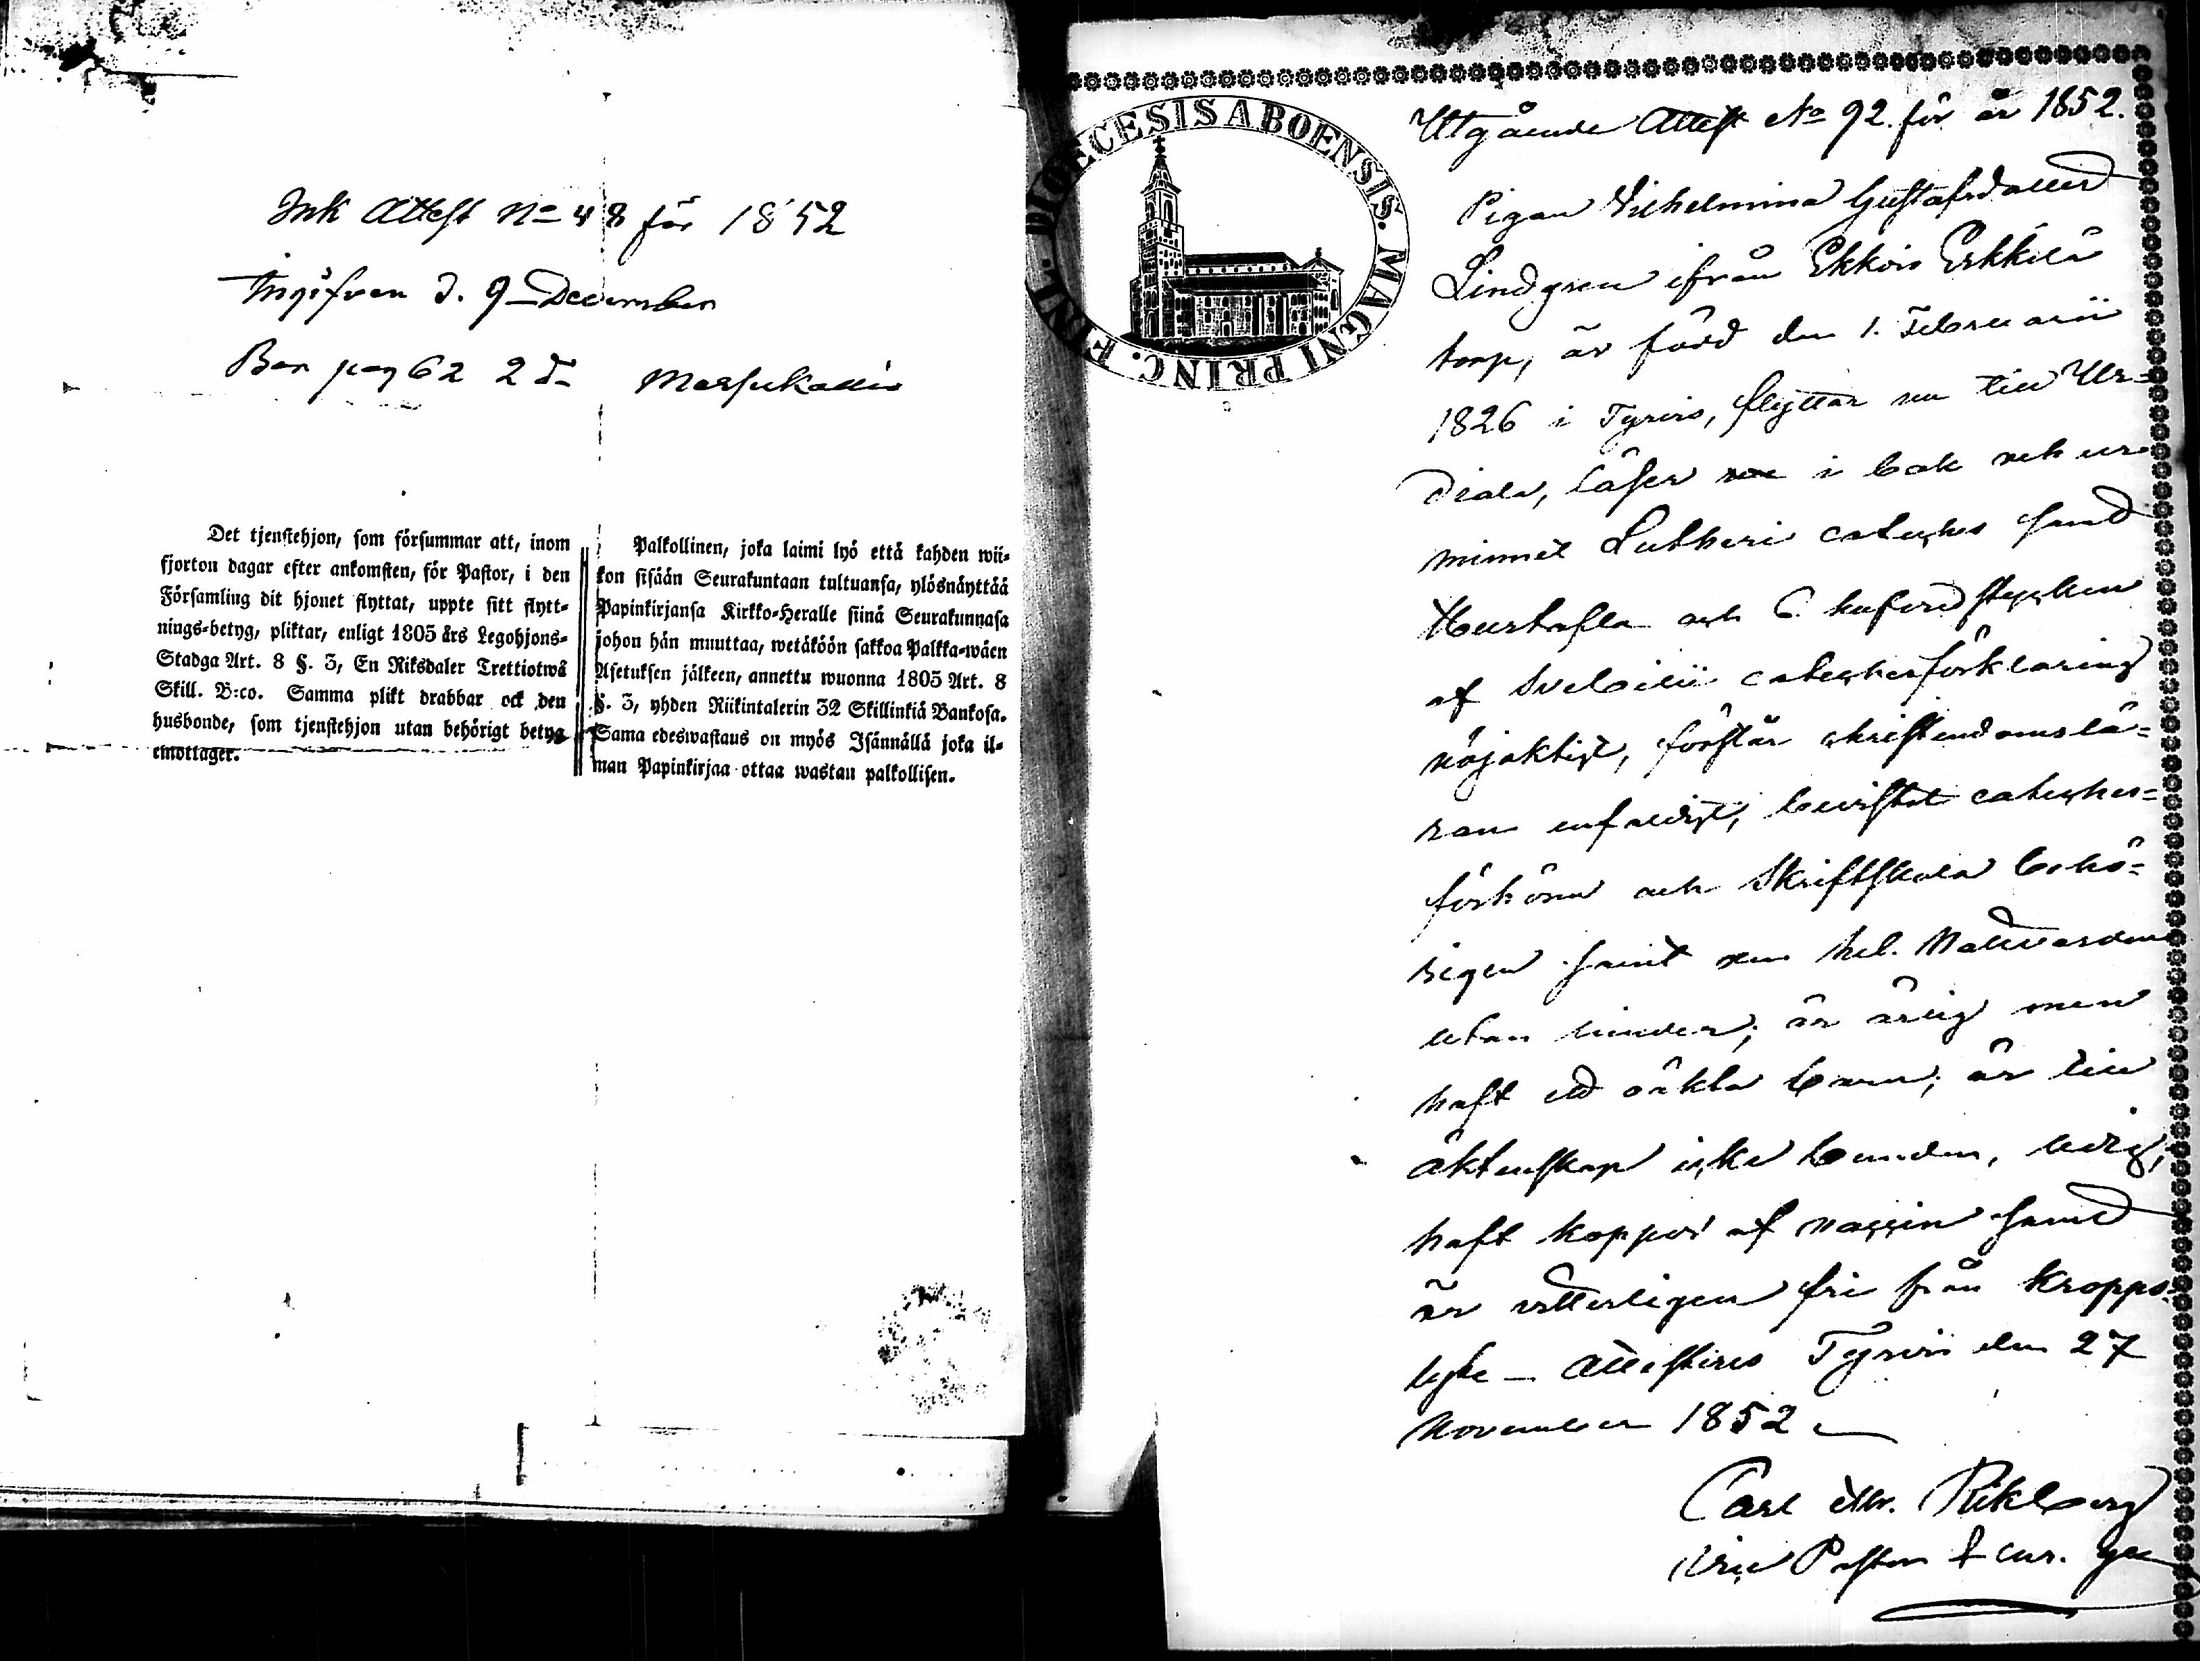 Ink Attest No 48 för 1852
Ingifven d. 9 December
Ber pag 62 2 d
Det tjenstehjon, som försummar att, inom
fjorton dagar efter ankomsten, för Pastor, i den
Församling dit hjonet flyttat, uppte sitt flytt-
nings-betyg, pliktar, enligt 1805 års Legohjons-
Stadga Art. 8 §. 3, En Riksdaler Trettiotwå
Skill. B:co. Samma plikt drabbar ock den
husbonde, som tjenstehjon utan behörigt betyg
emottager.
Palkollinen, joka laimi lyö että kahden wii-
kon sisään Seurakuntaan tultuansa, ylösnäyttää
Papinkirjansa Kirkko-Heralle siinä Seurakunnasa
johon hän muuttaa, wetäköön sakkoa Palkka-wäen
Asetuksen jälkeen, annettu wuonna 1805 Art. 8
§. 3, yhden Riikintalerin 32 Skillinkiä Bankosa.
Sama edeswastaus on myös Isännällä joka il-
man Papinkirjaa ottaa wastan palkollisen.
FINL. DIOECESIS ABOENSIS. MAGNI PRINC.
Utgående Attest No 92. för år 1852.
Pigan Vilhelmina Gustafsdotter
Lindgren ifrån Ekkois Erkkilä
torp, är född den 1. Februarii
1826 i Tyrvis, flyttar nu till Ur-
diala, läser i bok och ur
minnet Lutheri cateches samt
Hustafla och 6 hufvudstycken
af Svebilii catechesförklaring
nöjaktigt, förstår christendomslä-
ran enfaldigt, bevistat cateches-
förhören och Skriftskola behö-
rigen samt den hel. Nattvarden
utan hinder; är ärlig men
haft ett oäkta barn; är till
äktenskap icke bunden, ledig,
haft koppor af naccin samt
är vetterligen fri från kropps-
lyte – Attesteres Tyrvis den 27
November 1852
Carl Rikberg
Vice Pastor